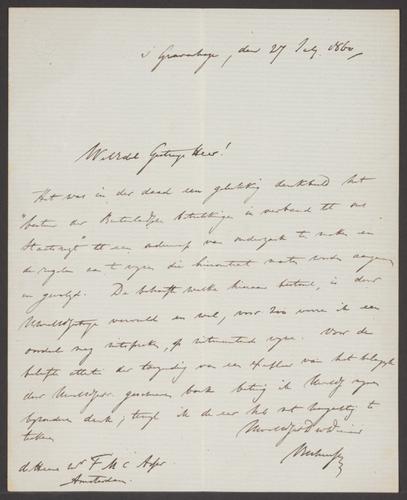 's Gravenhage, den 27 July 1860
WelEdel Gestrenge Heer!
Het was in der daad een gelukkig denkbeeld het
"bestuur der Buitenlandsche betrekkingen in verband tot ons
Staatsregt" tot een onderwerp van onderzoek te maken en
de regelen aan te wijzen die hieromtrent moeten worden aangenomen
en gevolgd. De behoefte welke hieraan bestond, is door
vervuld en wel, voor zoo verre ik een
oordeel mag uitspreken, op uitnemende wijze. Voor de
beleefde attentie der toezending van een afdruk van het belangrijk
door geschreven boek betuig ik
bijzonderen dank; terwijl ik de eer heb met hoogachting te
teekenen
Dw Dienaar
de Heer Mr F M C Asser
Amsterdam.